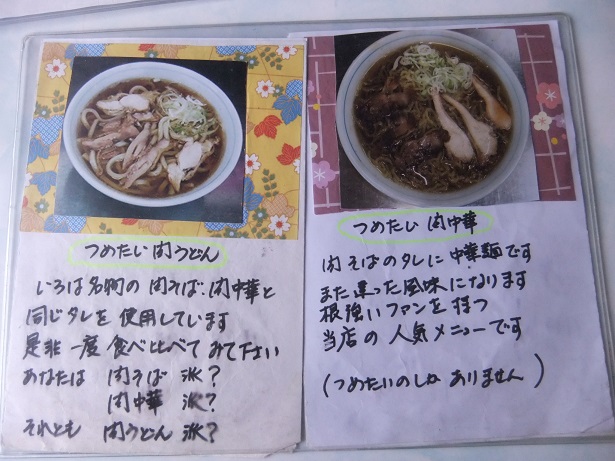 つめたい肉うどん
いろは名物の 肉そば、肉中華と
同じタレを 使用しています
是非一度 食べ比べて みて下さい
あなたは 肉そば 派?
肉中華 派?
それとも 肉うどん 派?
つめたい 肉中華
肉そばのタレに 中華麺です
また違った風味になります
根強いファンを持つ
当店の 人気メニューです
(つめたいのしか ありません)